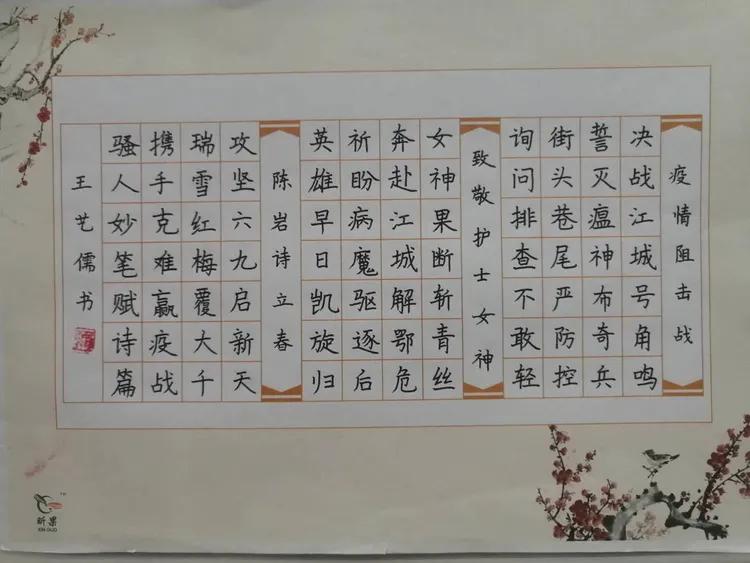 疫情阻击战
决战江城号角鸣
誓灭瘟神布奇兵
街头巷尾严防控
询问排查不敢轻
致敬护士女神
女神果断斩青丝
奔赴江城解鄂危
祈盼病魔驱逐后
英雄早日凯旋归
陈岩诗立春
攻坚六九启新天
瑞雪红梅覆大千
携手克难赢疫战
骚人妙笔赋诗篇
王艺儒书
昕果
XIN GUO